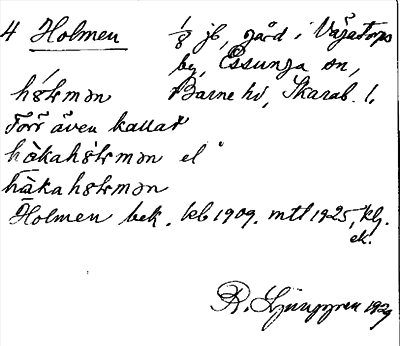 4 Holmen 1/8 jb, gård i Vässtorps
by, Essunga sn,
hólmən Barne hd, Skarab. l.
Förr även kallat
hòkahólmən el
hàkahólmən
Holmen bek. kb 1909. mtl 1925, klg.
ek.
R. Ljunggren 1929